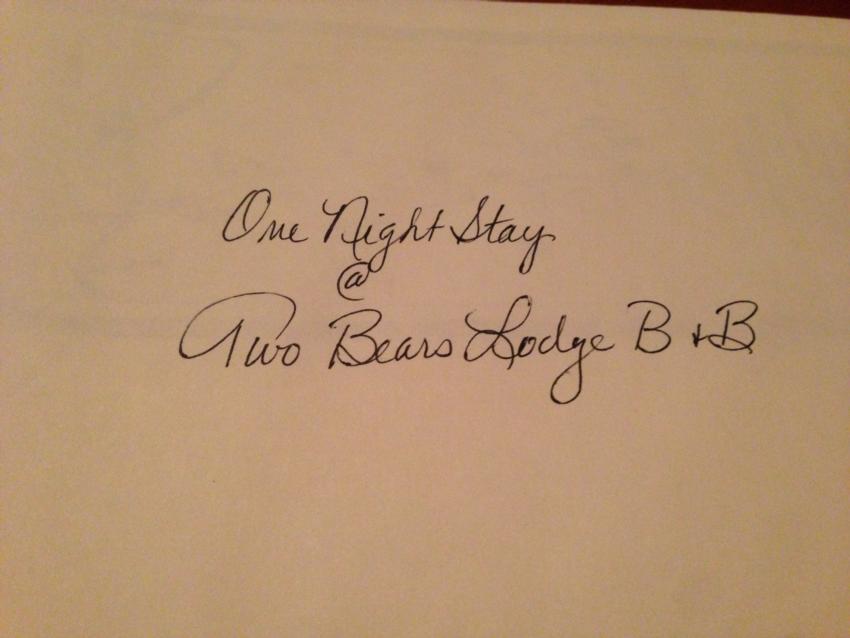 One Night Stay
@
Two Bears Lodge B + B